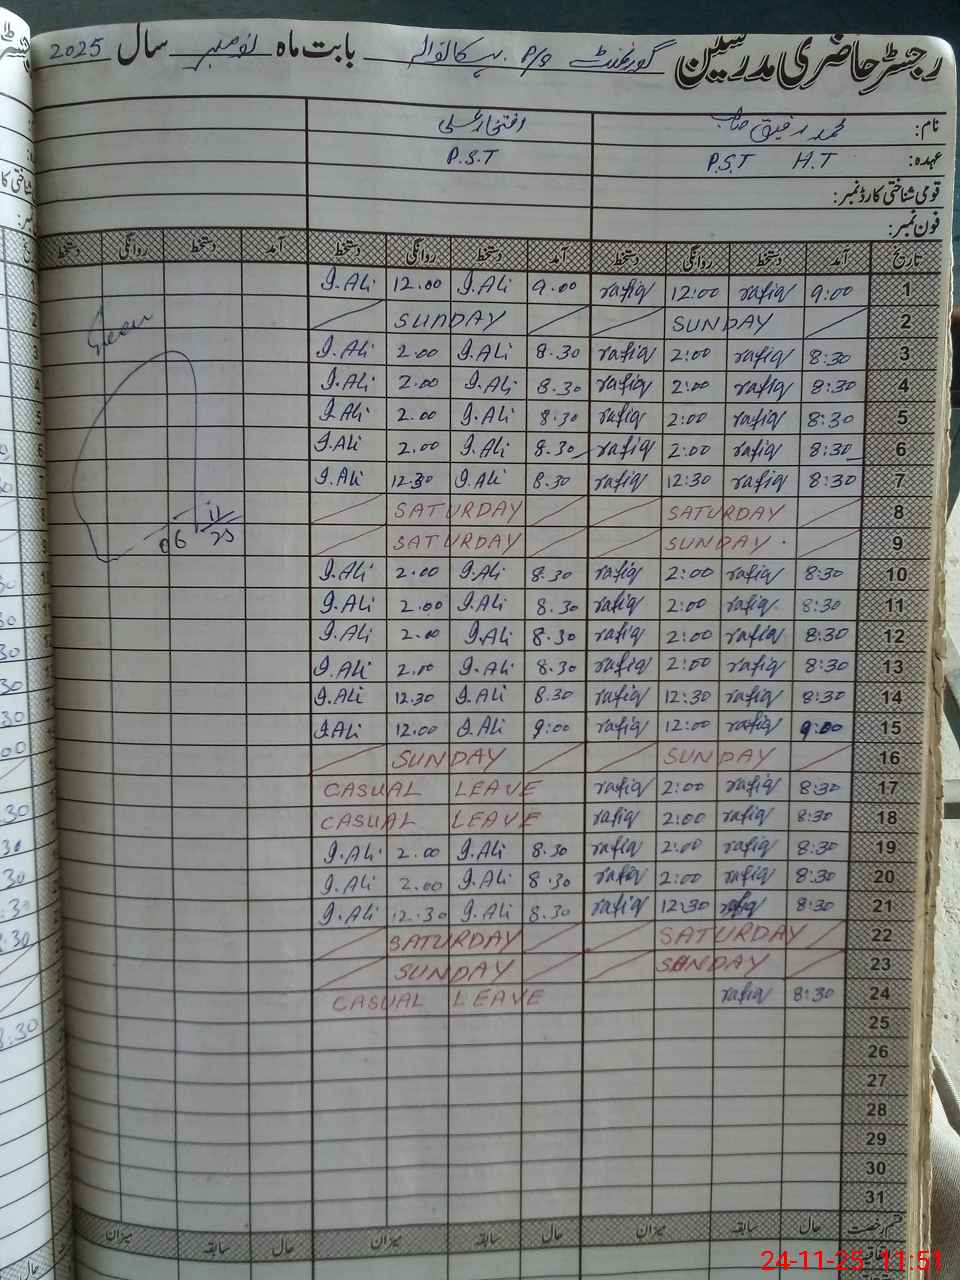 رجسٹر حاضری مدرسین گورنمنٹ P/S بابت ماہ نومبر سال 2025
نام: محمد رفیق صاحب افتخار علی
عہدہ: P.S.T H.T P.S.T
قومی شناختی کارڈ نمبر:
فون نمبر:
تاریخ آمد دستخط روانگی دستخط آمد دستخط روانگی دستخط آمد دستخط روانگی دستخط
1 9:00 rafiq 12:00 rafiq 9.00 I.Ali 12.00 I.Ali
2 SUNDAY SUNDAY
3 8:30 rafiq 2:00 rafiq 8.30 I.Ali 2.00 I.Ali
4 8:30 rafiq 2:00 rafiq 8.30 I.Ali 2.00 I.Ali
5 8:30 rafiq 2:00 rafiq 8.30 I.Ali 2.00 I.Ali
6 8:30 rafiq 2:00 rafiq 8.30 I.Ali 2.00 I.Ali
7 8:30 rafiq 12:30 rafiq 8.30 I.Ali 12.30 I.Ali
8 SATURDAY SATURDAY
9 SUNDAY SATURDAY
06 11/25
10 8:30 rafiq 2:00 rafiq 8.30 I.Ali 2.00 I.Ali
11 8:30 rafiq 2:00 rafiq 8.30 I.Ali 2.00 I.Ali
12 8:30 rafiq 2:00 rafiq 8.30 I.Ali 2.00 I.Ali
13 8:30 rafiq 2:00 rafiq 8.30 I.Ali 2.00 I.Ali
14 8:30 rafiq 12:30 rafiq 8.30 I.Ali 12.30 I.Ali
15 9:00 rafiq 12:00 rafiq 9:00 I.Ali 12.00 I.Ali
16 SUNDAY SUNDAY
17 8:30 rafiq 2:00 rafiq CASUAL LEAVE
18 8:30 rafiq 2:00 rafiq CASUAL LEAVE
19 8:30 rafiq 2:00 rafiq 8.30 I.Ali 2.00 I.Ali
20 8:30 rafiq 2:00 rafiq 8.30 I.Ali 2.00 I.Ali
21 8:30 rafiq 12:30 rafiq 8.30 I.Ali 12.30 I.Ali
22 SATURDAY SATURDAY
23 SUNDAY SUNDAY
24 8:30 rafiq CASUAL LEAVE
25
26
27
28
29
30
31
قسم رخصت حال سابقہ میزان حال سابقہ میزان حال سابقہ میزان
24-11-25 11:51